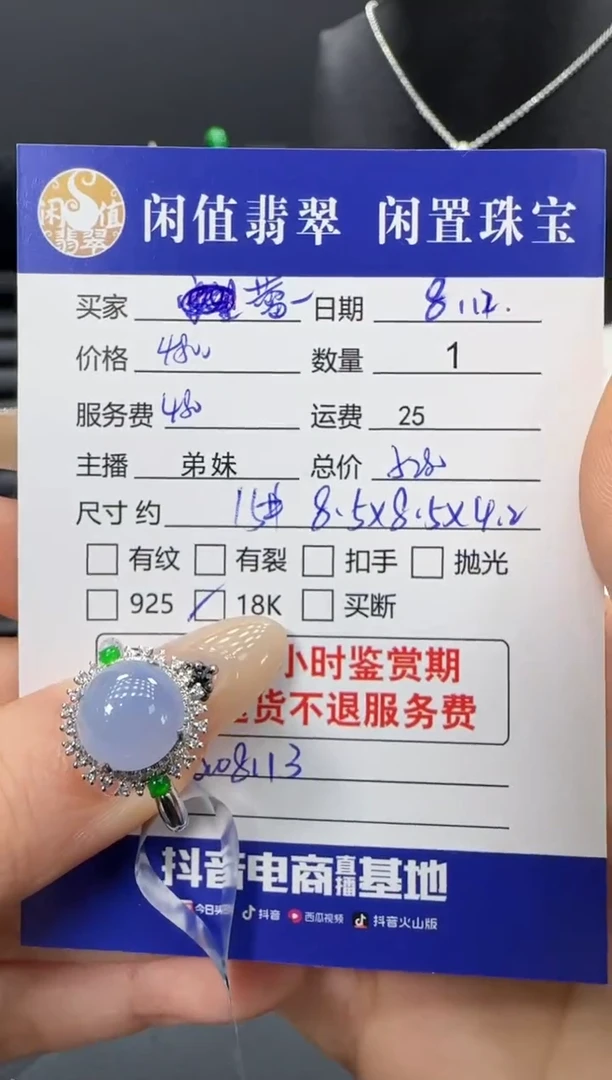 闲值翡翠 闲置珠宝
闲值
翡翠
买家 蕾一 日期 8.12.
价格 4800 数量 1
服务费 480 运费 25
主播 弟妹 总价
尺寸 约 15# 8.5x8.5x4.2
有纹 有裂 扣手 抛光
925 18K 买断
小时鉴赏期
货不退服务费
208113
抖音电商直播基地
今日头 抖音 西瓜视频 抖音火山版